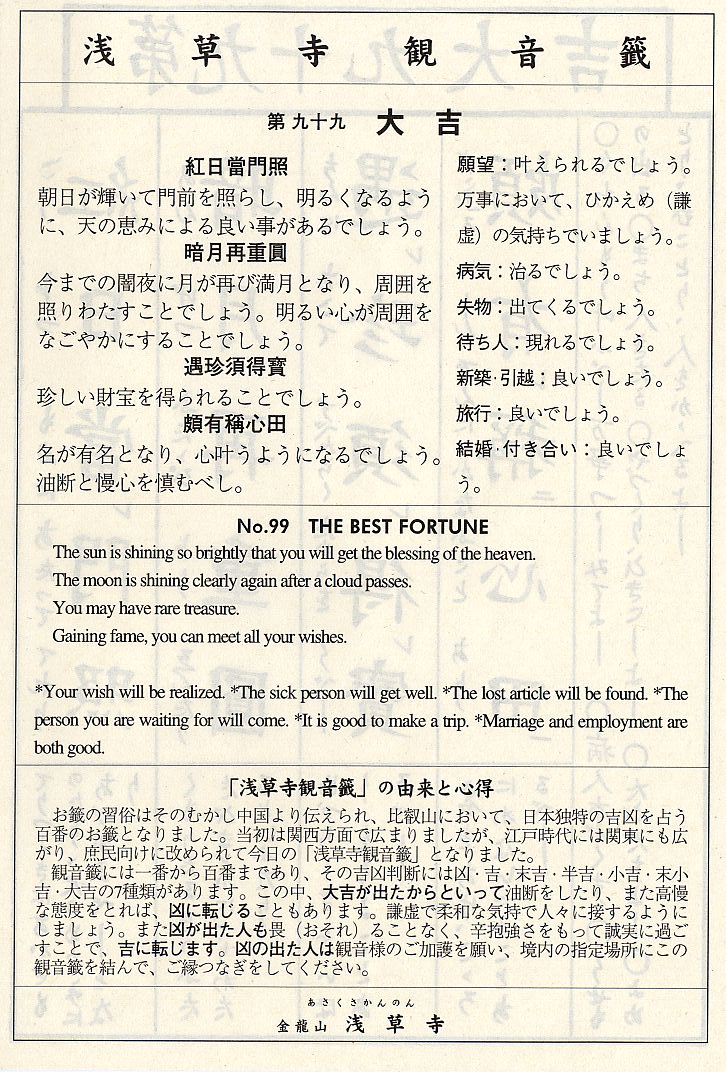 浅草寺観音籤
第九十九 大吉
紅日當門照
朝日が輝いて門前を照らし、明るくなるよう
に、天の恵みによる良い事があるでしょう。
暗月再重圓
今までの闇夜に月が再び満月となり、周囲を
照りわたすことでしょう。明るい心が周囲を
なごやかにすることでしょう。
遇珍須得寶
珍しい財宝を得られることでしょう。
頗有稱心田
名が有名となり、心叶うようになるでしょう。
油断と慢心を慎むべし。
願望：叶えられるでしょう。
万事において、ひかえめ（謙
虚）の気持ちでいましょう。
病気：治るでしょう。
失物：出てくるでしょう。
待ち人：現れるでしょう。
新築·引越：良いでしょう。
旅行：良いでしょう。
結婚·付き合い：良いでしょ
う。
No.99 THE BEST FORTUNE
The sun is shining so brightly that you will get the blessing of the heaven.
The moon is shining clearly again after a cloud passes.
You may have rare treasure.
Gaining fame, you can meet all your wishes.
*Your wish will be realized. *The sick person will get well. *The lost article will be found. *The
person you are waiting for will come. *It is good to make a trip. *Marriage and employment are
both good.
「浅草寺観音籤」の由来と心得
お籤の習俗はそのむかし中国より伝えられ、比叡山において、日本独特の吉凶を占う
百番のお籤となりました。当初は関西方面で広まりましたが、江戸時代には関東にも広
がり、庶民向けに改められて今日の「浅草寺観音籤」となりました。
観音籤には一番から百番まであり、その吉凶判断には凶·吉·末吉·半吉·小吉·末小
吉·大吉の7種類があります。この中、大吉が出たからといって油断をしたり、また高慢
な態度をとれば、凶に転じることもあります。謙虚で柔和な気持で人々に接するように
しましょう。また凶が出た人も畏（おそれ）ることなく、辛抱強さをもって誠実に過ご
すことで、吉に転じます。凶の出た人は観音様のご加護を願い、境内の指定場所にこの
観音籤を結んで、ご縁つなぎをしてください。
あさくさかんのん
金龍山 浅草寺